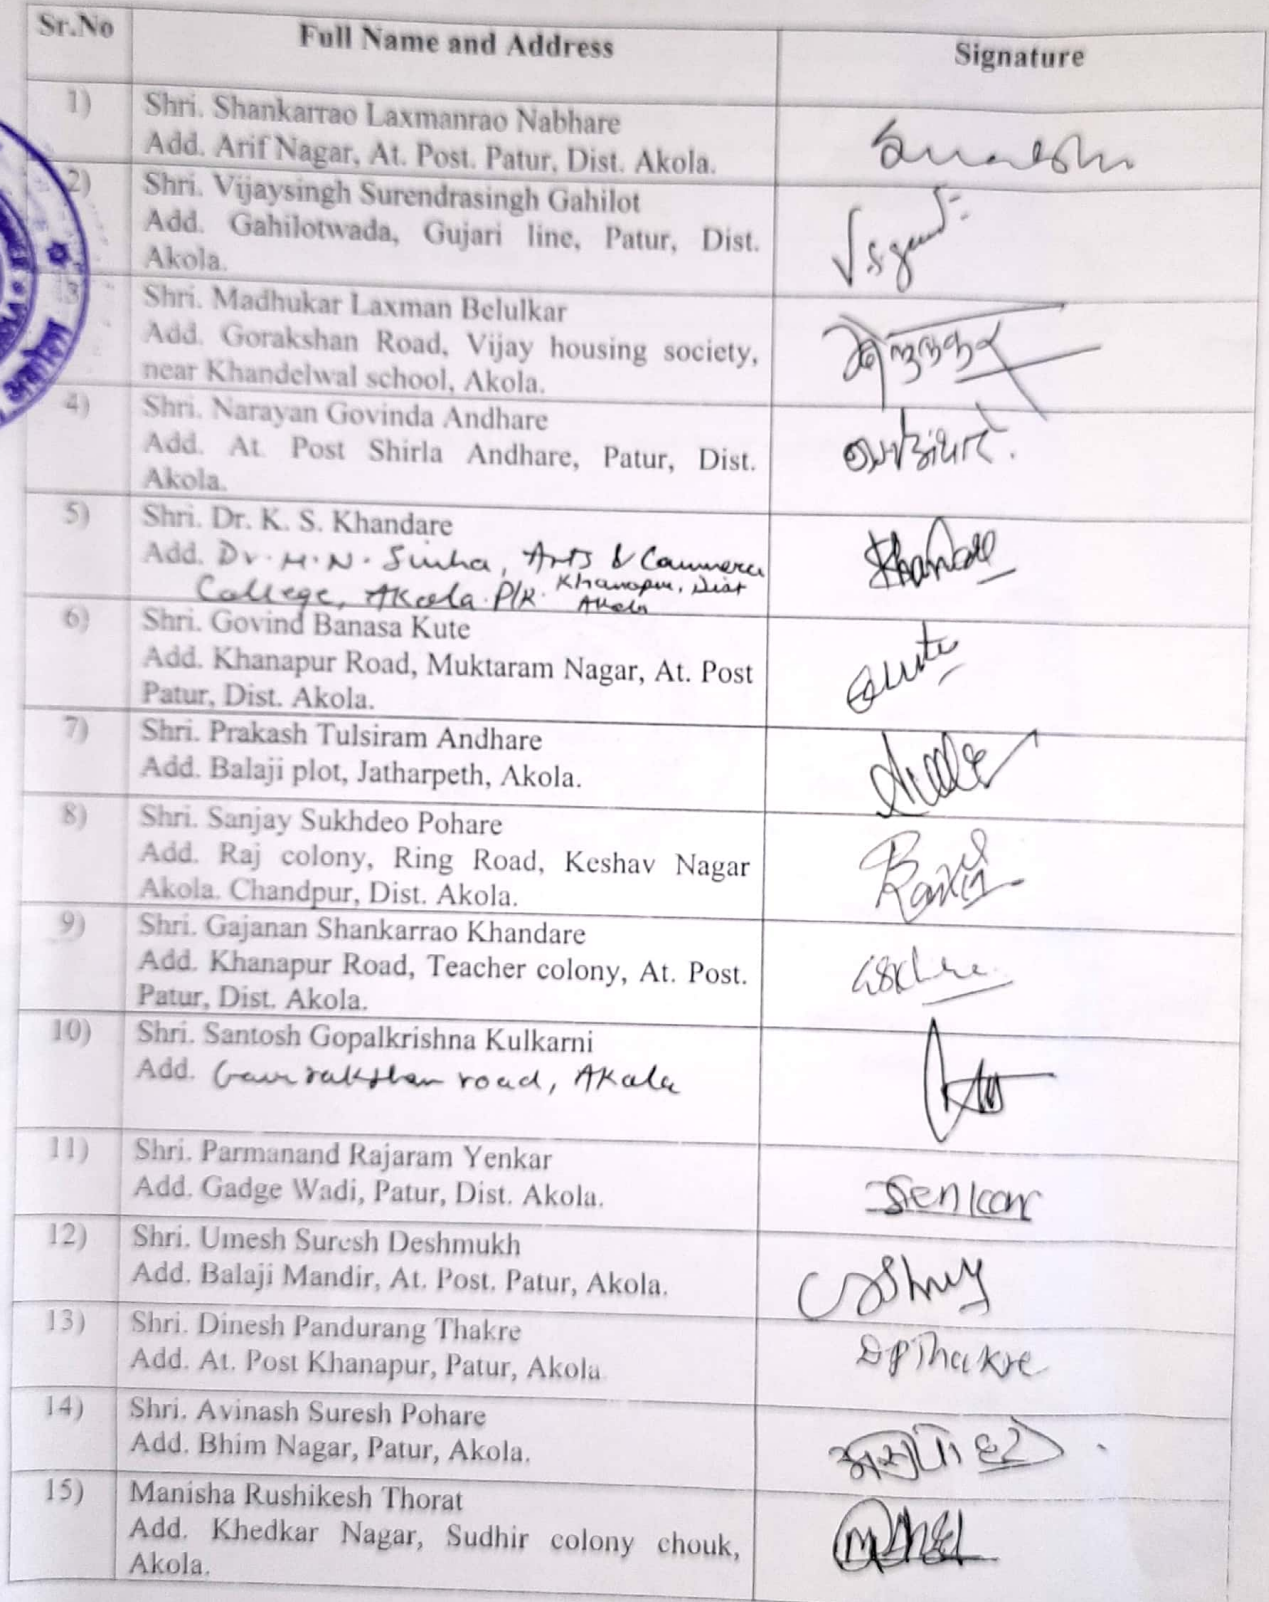 Sr.No Full Name and Address Signature
1) Shri. Shankarrao Laxmanrao Nabhare
Add. Arif Nagar, At. Post. Patur, Dist. Akola.
2) Shri. Vijaysingh Surendrasingh Gahilot
Add. Gahilotwada, Gujari line, Patur, Dist.
Akola.
3 Shri. Madhukar Laxman Belulkar
Add. Gorakshan Road, Vijay housing society,
near Khandelwal school, Akola.
4) Shri. Narayan Govinda Andhare
Add. At. Post Shirla Andhare, Patur, Dist.
Akola.
5) Shri. Dr. K. S. Khandare
Add. Dr. H. N. Sinha, Arts & Commerce
College, Akola. P/R. Khanapur, Dist
Akola
Khandare
6) Shri. Govind Banasa Kute
Add. Khanapur Road, Muktaram Nagar, At. Post
Patur, Dist. Akola.
7) Shri. Prakash Tulsiram Andhare
Add. Balaji plot, Jatharpeth, Akola.
8) Shri. Sanjay Sukhdeo Pohare
Add. Raj colony, Ring Road, Keshav Nagar
Akola. Chandpur, Dist. Akola.
9) Shri. Gajanan Shankarrao Khandare
Add. Khanapur Road, Teacher colony, At. Post.
Patur, Dist. Akola.
10) Shri. Santosh Gopalkrishna Kulkarni
Add. Gaurakshan road, Akola
11) Shri. Parmanand Rajaram Yenkar
Add. Gadge Wadi, Patur, Dist. Akola.
12) Shri. Umesh Suresh Deshmukh
Add. Balaji Mandir, At. Post. Patur, Akola.
13) Shri. Dinesh Pandurang Thakre
Add. At. Post Khanapur, Patur, Akola
DPThakre
14) Shri. Avinash Suresh Pohare
Add. Bhim Nagar, Patur, Akola.
15) Manisha Rushikesh Thorat
Add. Khedkar Nagar, Sudhir colony chouk,
Akola.
अकोला